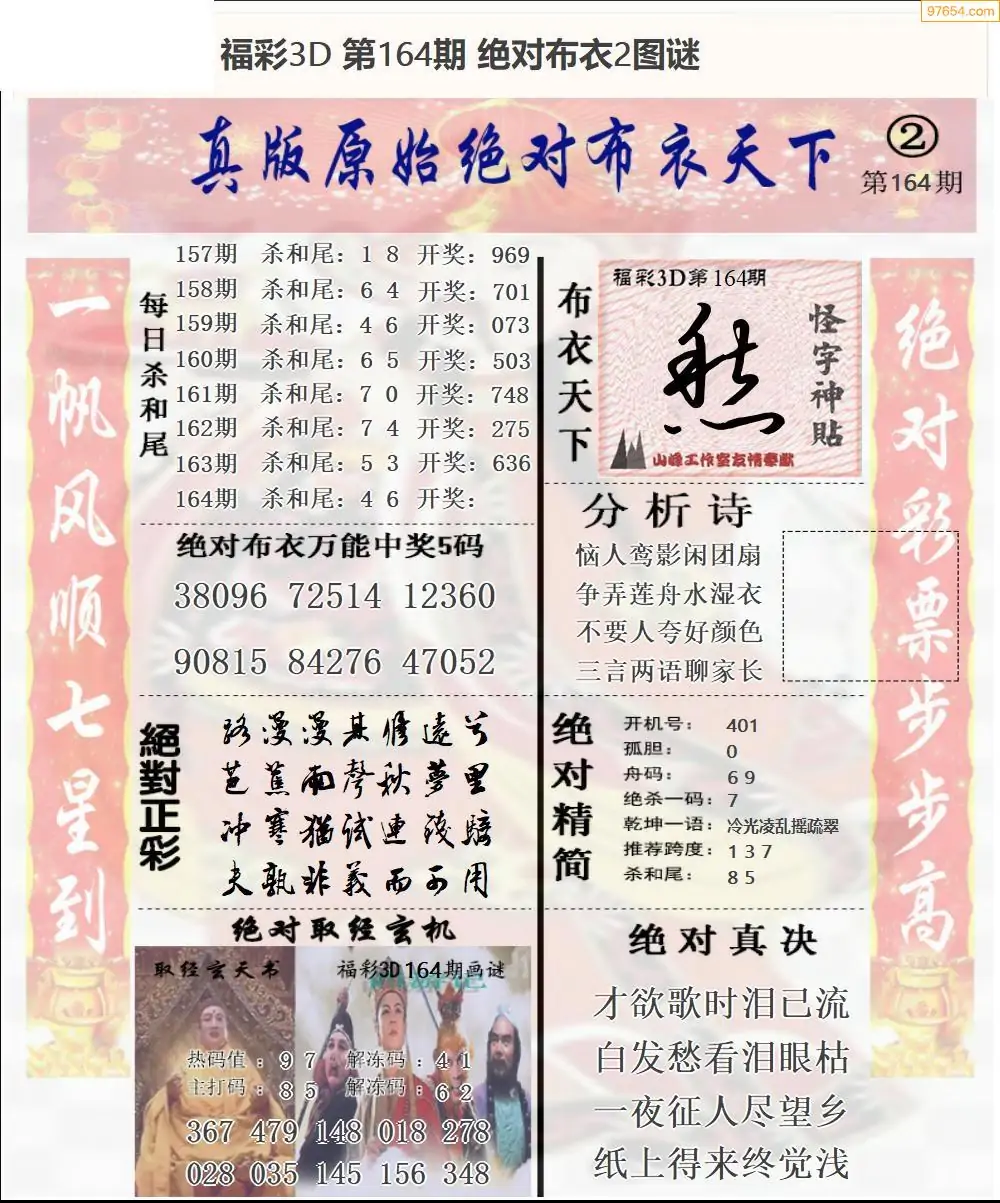 97654.com
福彩3D 第164期 绝对布衣2图谜
真版原始绝对布衣天下
②
第164期
一帆风顺七星到
每日杀和尾
157期 杀和尾：1 8 开奖：969
158期 杀和尾：6 4 开奖：701
159期 杀和尾：4 6 开奖：073
160期 杀和尾：6 5 开奖：503
161期 杀和尾：7 0 开奖：748
162期 杀和尾：7 4 开奖：275
163期 杀和尾：5 3 开奖：636
164期 杀和尾：4 6 开奖：
绝对布衣万能中奖5码
38096 72514 12360
90815 84276 47052
絕對正彩
路漫漫其修遠兮
芭蕉雨聲秋夢里
冲寒猶试連殘騣
夫孰非義而可用
绝对取经玄机
取经玄天书
福彩3D164期画谜
热码值：9 7 解冻码：4 1
主打码：8 5 解冻码：6 2
367 479 148 018 278
028 035 145 156 348
布衣天下
福彩3D第164期
愁
怪字神貼
山峰工作室友情奉献
分析诗
恼人鸾影闲团扇
争弄莲舟水湿衣
不要人夸好颜色
三言两语聊家长
绝对精简
开机号： 401
孤胆： 0
舟码： 6 9
绝杀一码：7
乾坤一语：冷光凌乱摇疏翠
推荐跨度：1 3 7
杀和尾： 8 5
绝对真决
才欲歌时泪已流
白发愁看泪眼枯
一夜征人尽望乡
纸上得来终觉浅
绝对彩票步步高